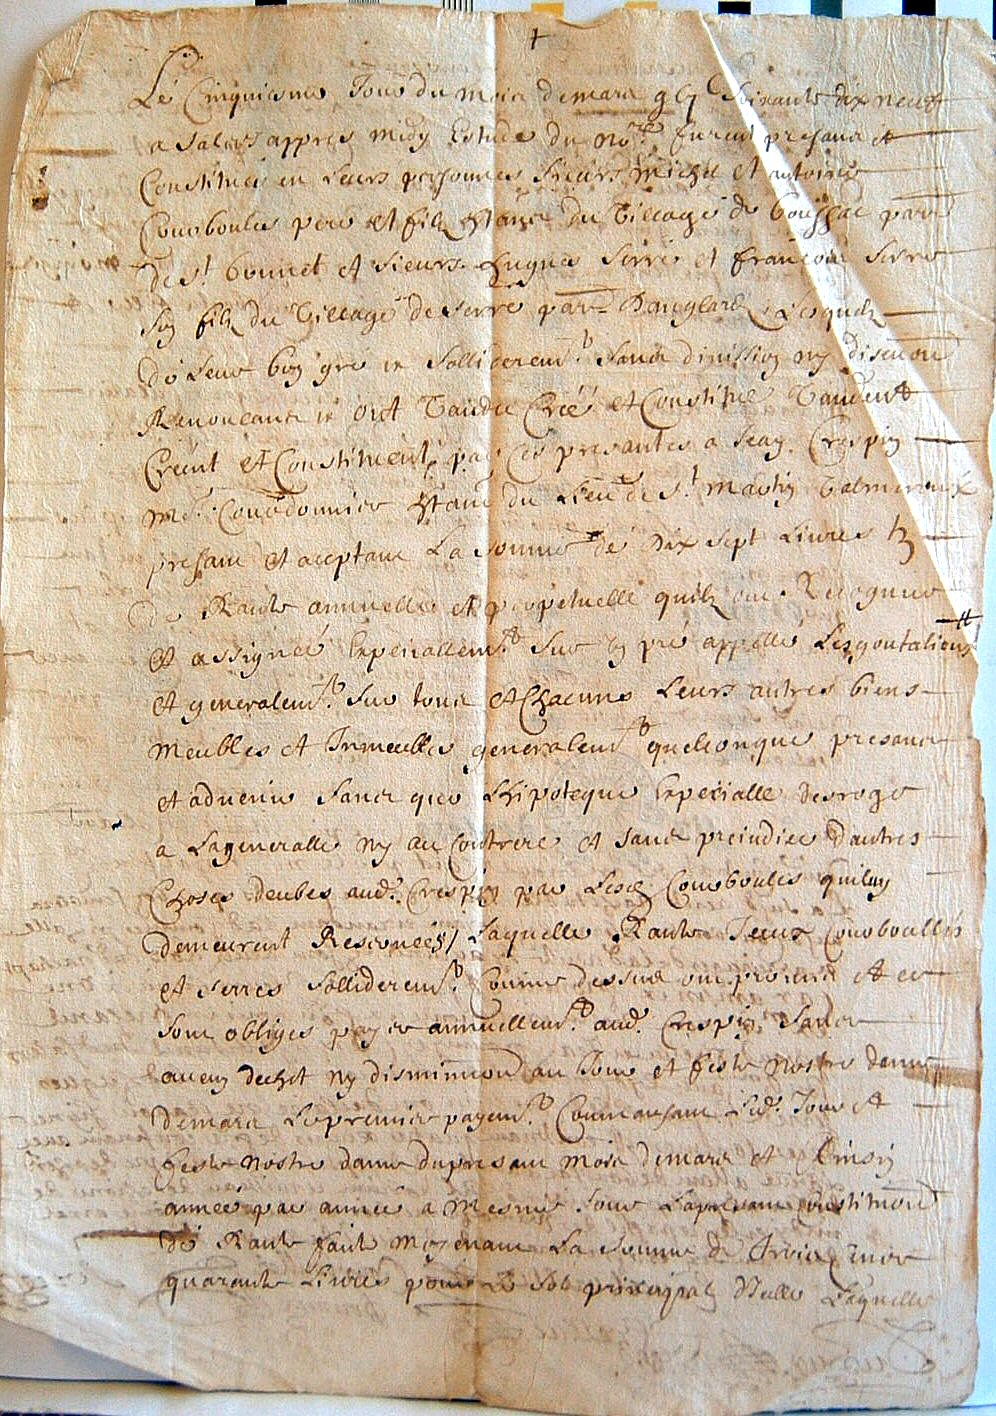 Le Cinquiesme Jour du mois de mars Soixante dix neuf
a Salers appres midy Estude du No.re furent presans et
Constitués en Leurs personnes Sieurs michel et antoine
Couboules pere et filz du Village de boussac par.
de S.t bonnet et Sieurs hugues Serre et françois Serre
Sy filz du Village de Serre par. Danglard Lesquelz
de Leur boy gre Sollideremt Sans division ny discution
Renonceans ont Vandu Créé et Constitué Vandent
Creent et Constituent par Ces presantes a Jeay Crespiy
Me. Courdonnier du Lieu de S.t martiy Valmeroux
presant et aceptant La Somme de Dix Sept Livres
de Rante annuelle et perpetuelle quilz ont
et assignée Expeciallemt Sur uy pré appellé Lesgoutalieux
et generalemt Sur tous et Chacuns Leurs autres biens
meubles et Jnmeubles generalemt quelconques presans
et advenir Sans que Lhipoteque Expecialle desroge
a La generalle ny au Contrere et Sans preiudice dautres
Choses deubes aud. Crespiy par Lesd. Couboules quiluy
demeurent Reservées / Laquelle Rante Jceux Couboulles
et Serres Sollideremt Comme dessus ont promis et se
Sont obliges payer annuellemt aud. Crespiy Sans
aucuy dechet ny disminution au Jour et feste Nostre dame
de mars Le premier payemt Commansant Led. Jour et
feste Nostre dame du presant mois de mars et Ainsiy
année par année a mesme Jour La presant Constitution
de Rante faite moyenant La Somme de Trois Cens
quarante Livres pour Le Sol principal d'Jcelle Laquelle